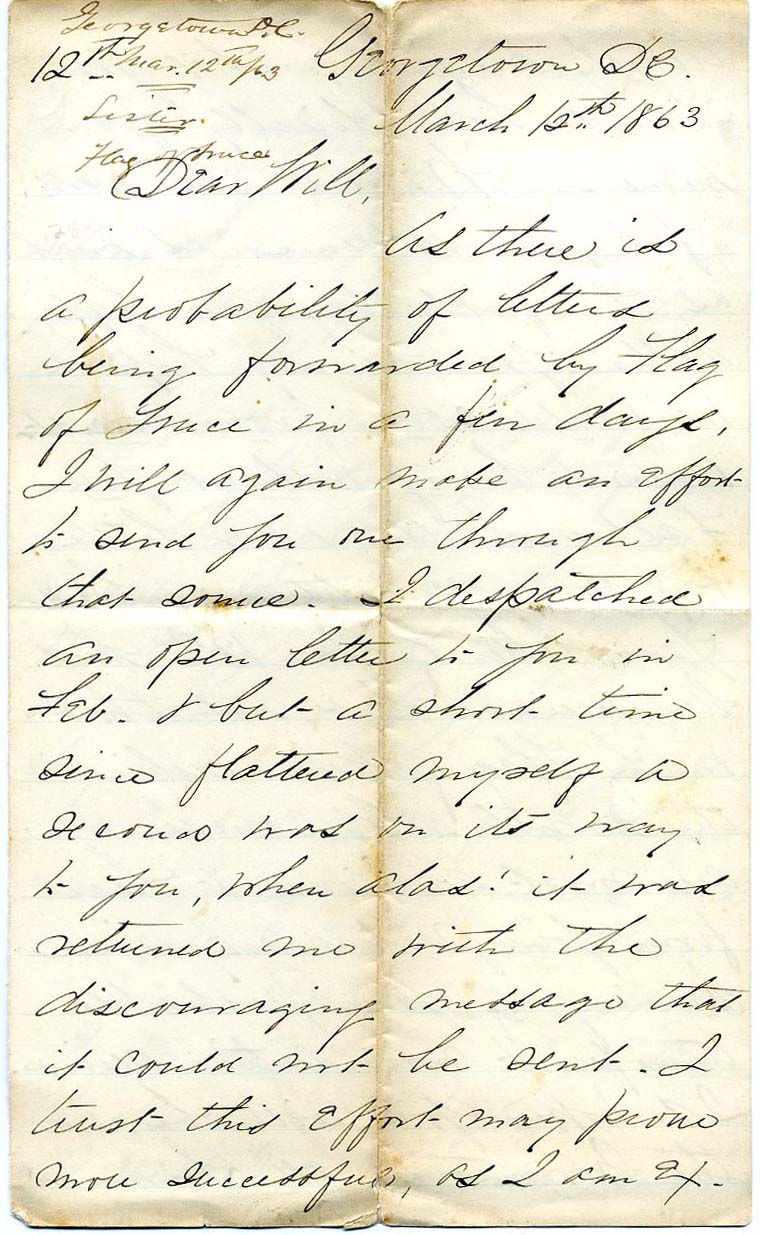 Georgetown D.C.
12th Mar. 12th /63
Sister.
Flag of Truce
Georgetown DC.
March 12th 1863
Dear Will,
As there is
a probability of letters
being forwarded by Flag
of Truce in a few days,
I will again make an effort
to send you one through
that source. I despatched
an open letter to you in
Feb. & but a short time
since flattered myself a
second was on its way
to you, when alas! it was
returned me with the
discouraging message that
it could not be sent. I
trust this effort may prove
more successful, as I am ex-